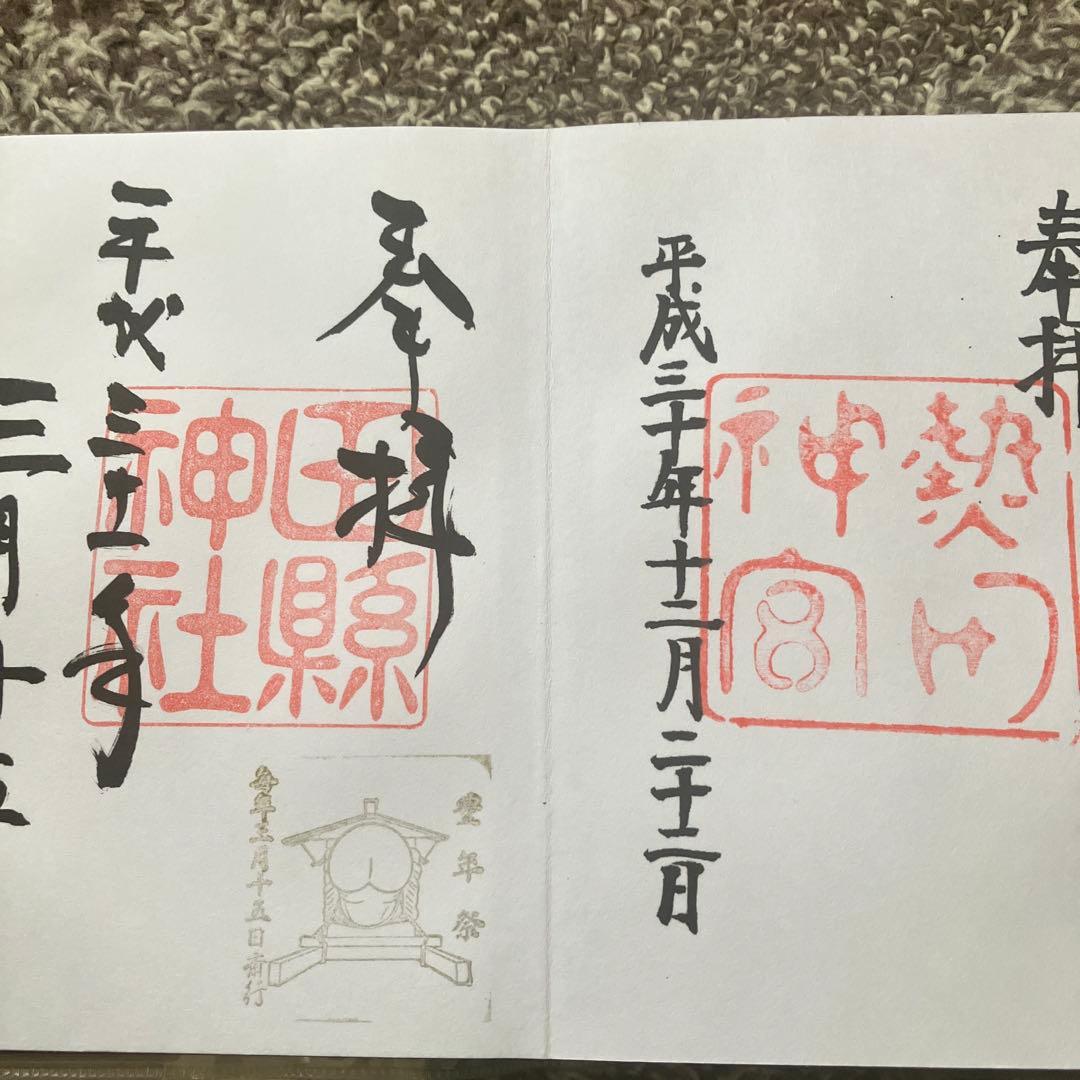 奉拝
熱田
神宮
平成三十年十二月二十二日
奉拝
田縣
神社
平成三十一年
三月十五
豊年祭
毎年三月十五日斎行